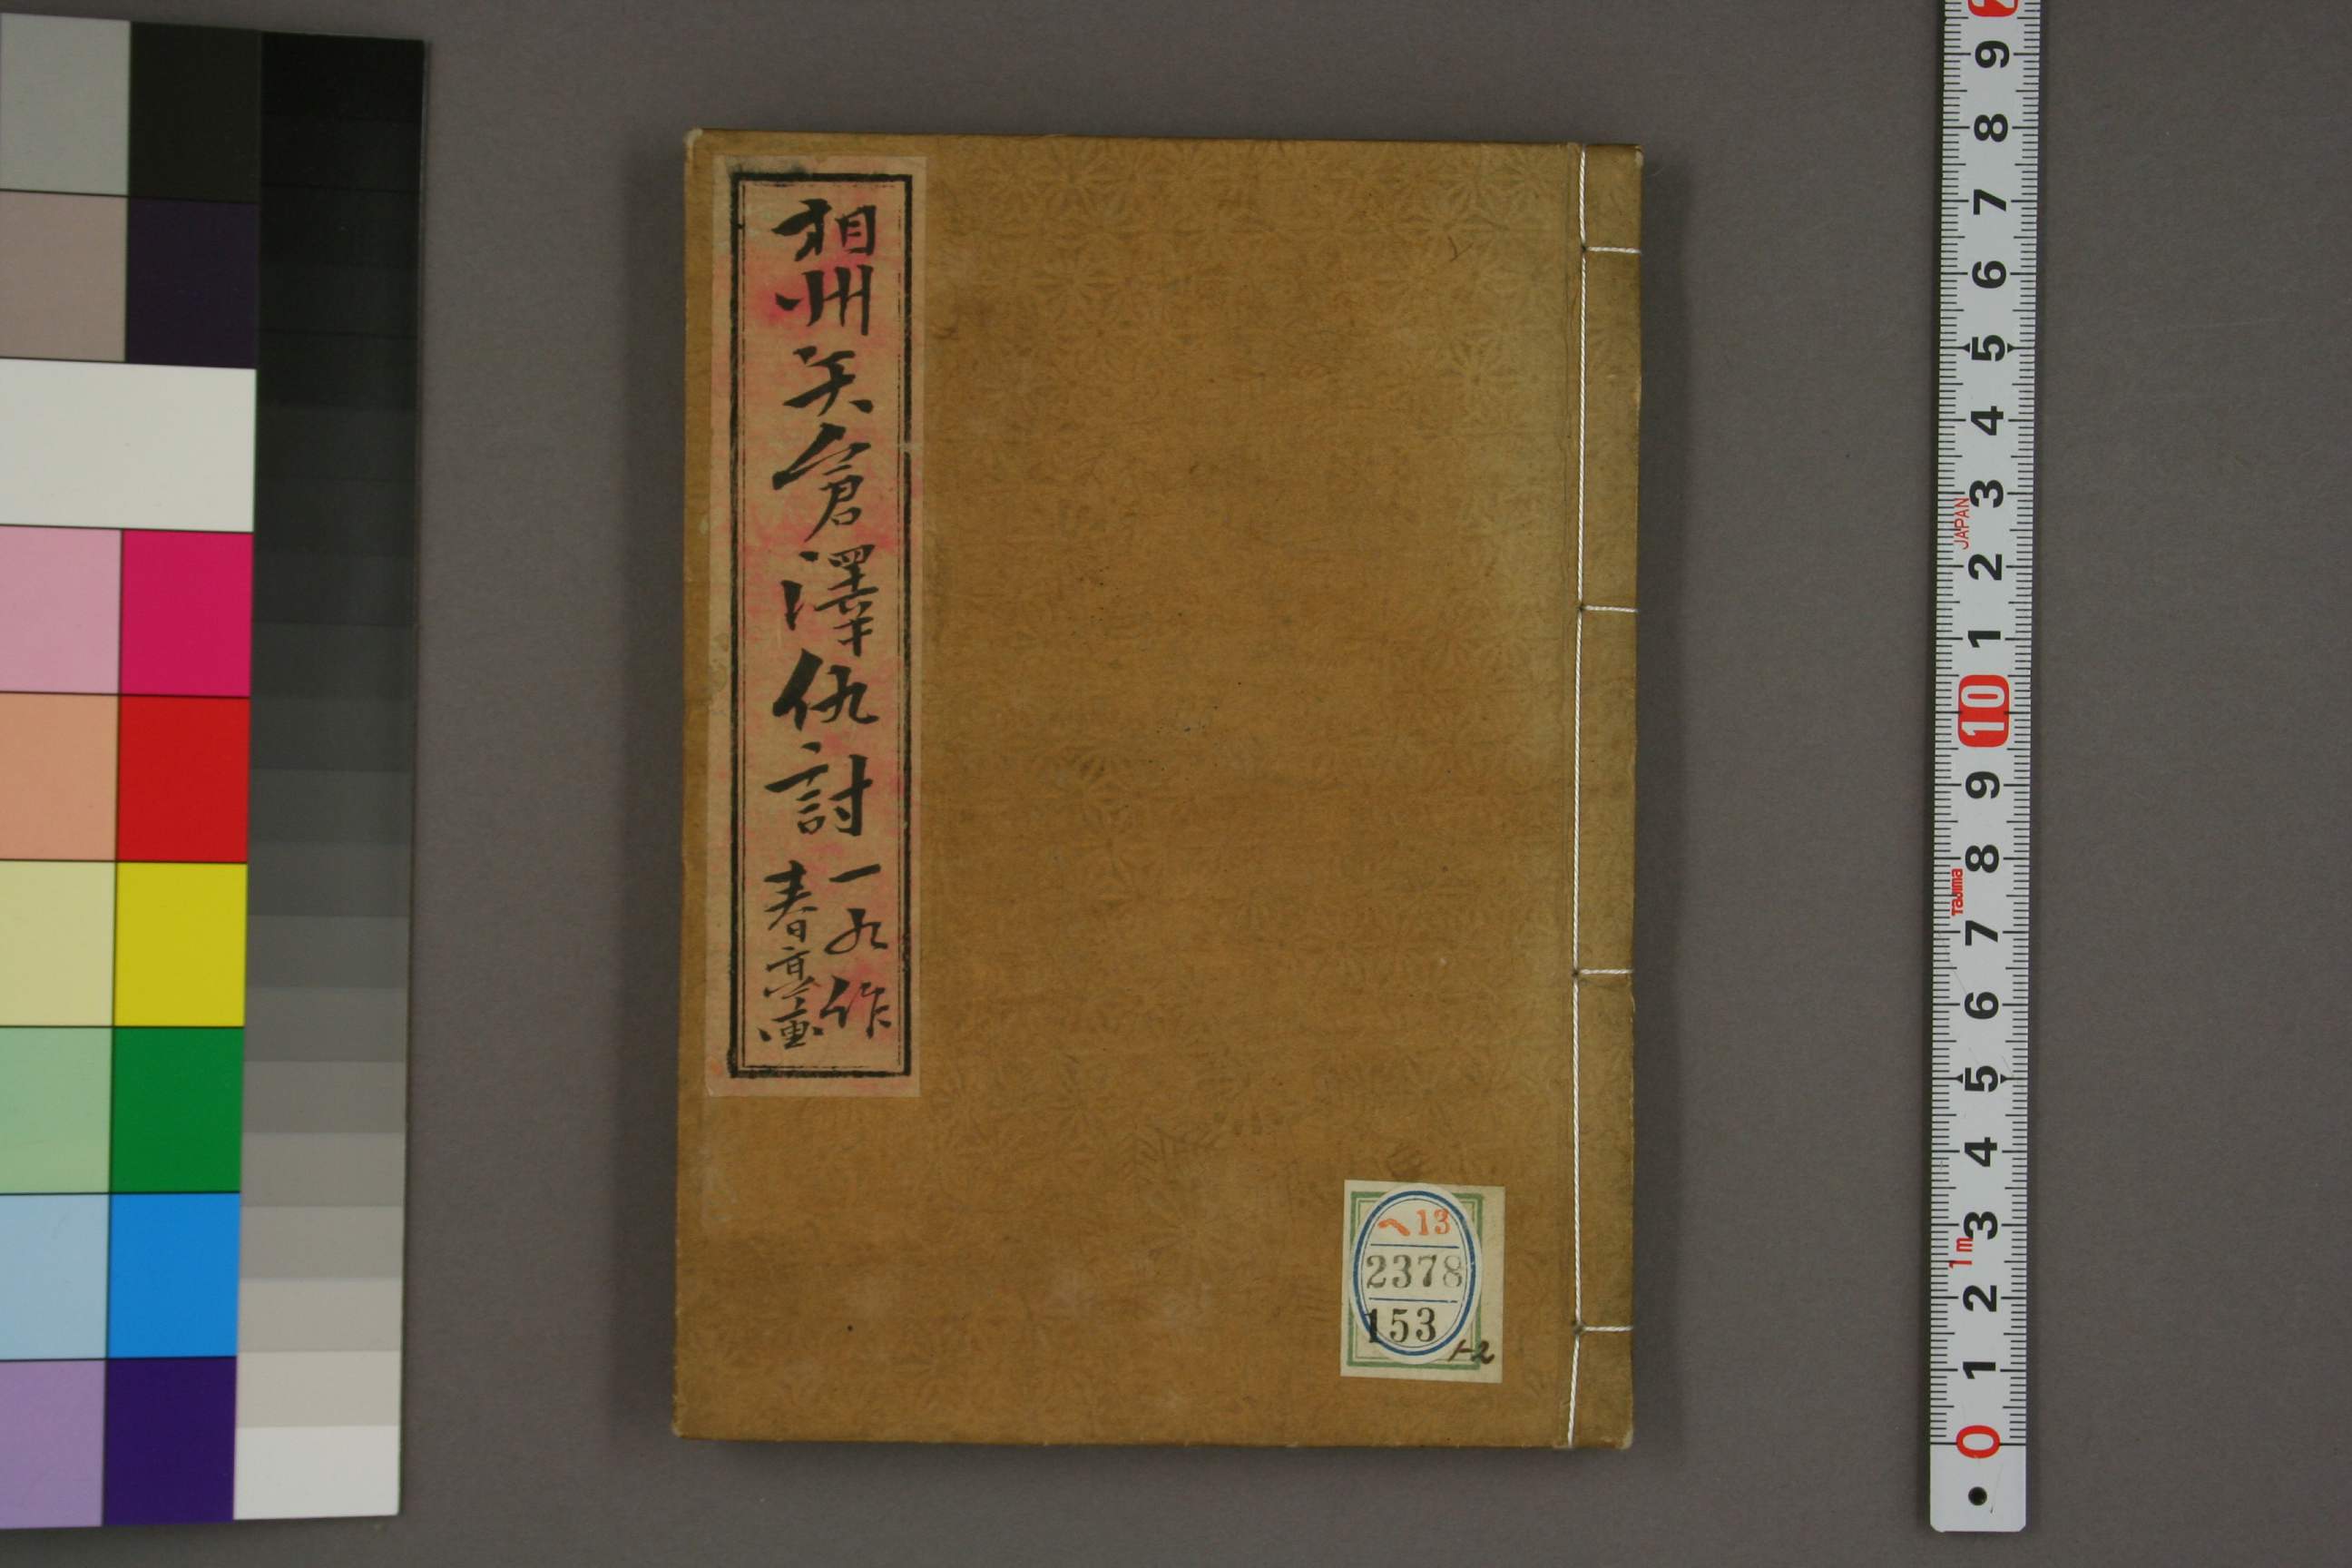 相州矢倉澤仇討
一九作
春亭画
へ13
2378
153
1-2
9
8
7
6
5
4
3
JAPAN
2
1
10
9
8
Tajima
7
6
5
4
3
1m
2
1
0